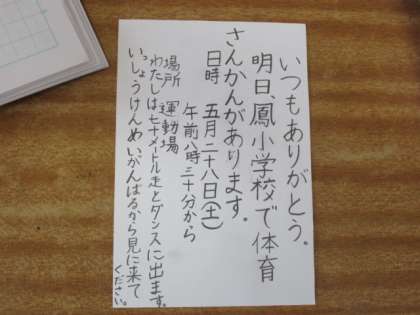 いつもありがとう。
明日、鳳小学校で体育
さんかんがあります。
日時 五月二十八日(土)
午前八時三十分から
場所 運動場
わたしは七十メートル走とダンスに出ます。
いっしょうけんめいがんばるから見に来て
ください。